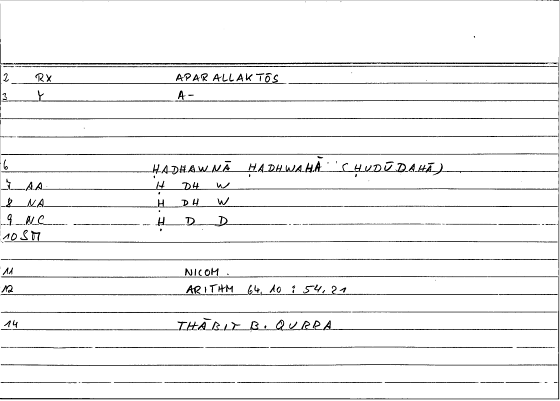 2 RX APARALLAKTŌS
3 Y A-
6 ḤADHAWNĀ ḤADHWAHĀ (ḤUDŪDAHĀ)
7 AA Ḥ DH W
8 NA Ḥ DH W
9 NC Ḥ D D
10 SM
11 NICOM.
12 ARITHM 64.10 : 54.21
14 THĀBIT B. QURRA